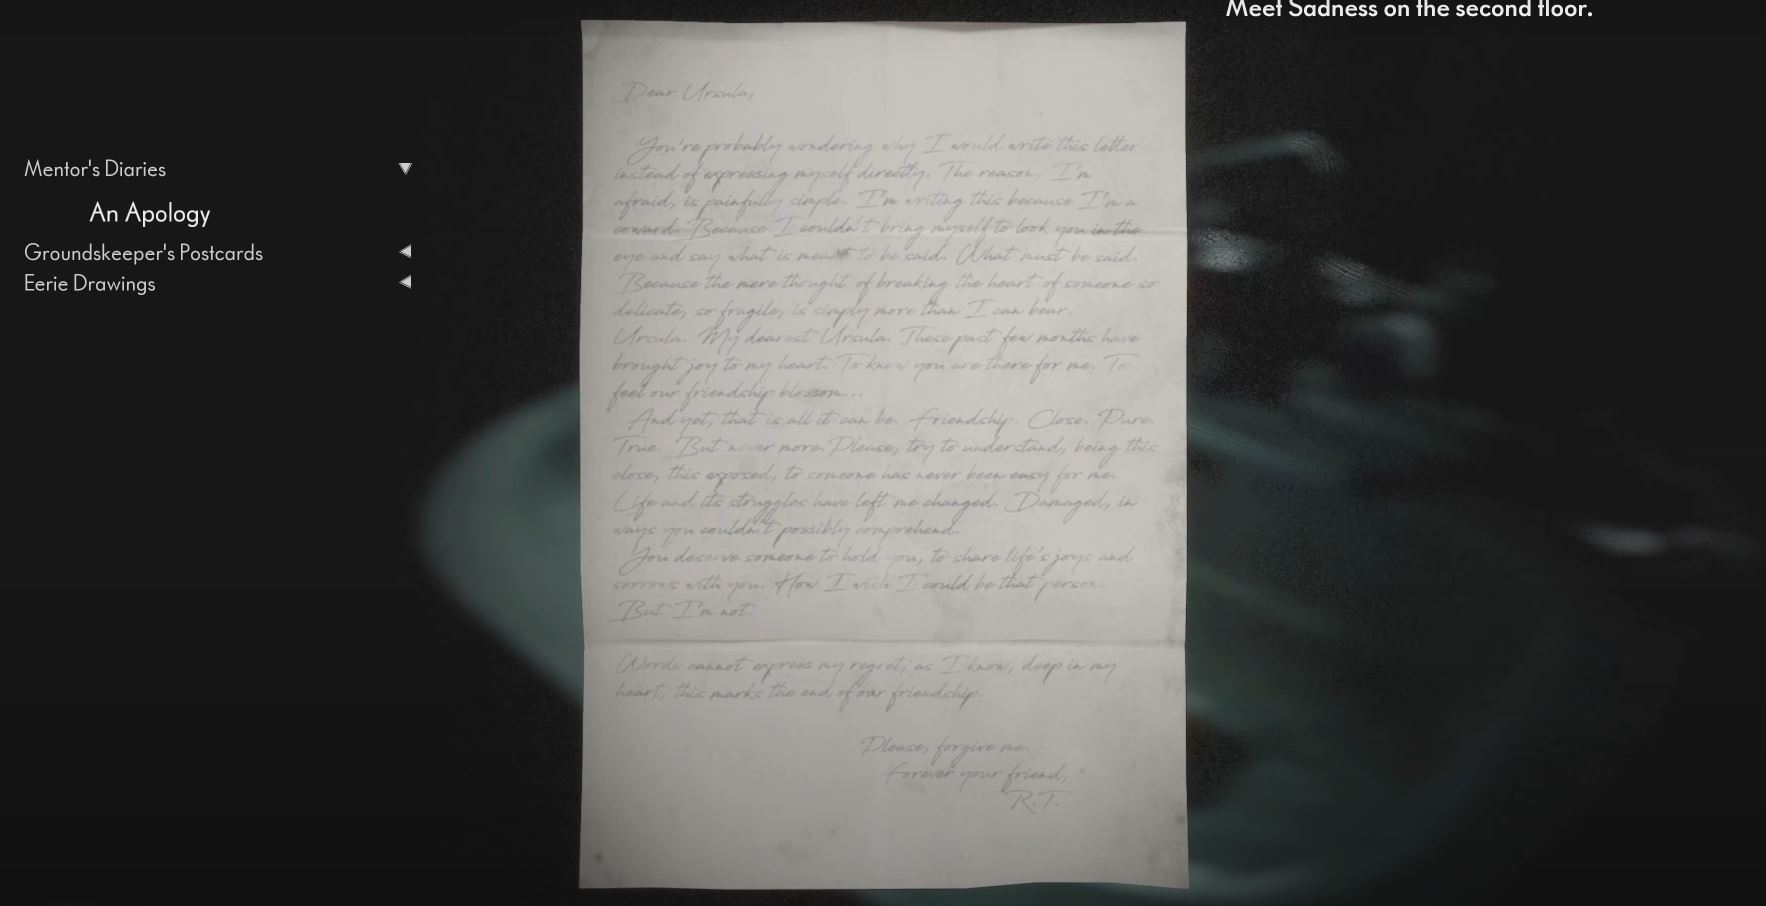 Meet Sadness on the second floor.
Mentor's Diaries
An Apology
Groundskeeper's Postcards
Eerie Drawings
Dear Ursula,
You're probably wondering why I would write this letter
instead of expressing myself directly. The reason, I'm
afraid, is painfully simple. I'm writing this because I'm a
coward. Because I couldn't bring myself to look you in the
eye and say what is meant to be said. What must be said.
Because the mere thought of breaking the heart of someone so
delicate, so fragile, is simply more than I can bear.
Ursula. My dearest Ursula. These past few months have
brought joy to my heart. To know you are there for me. To
feel our friendship blossom...
And yet, that is all it can be. Friendship. Close. Pure.
True. But never more. Please, try to understand, being this
close, this exposed, to someone has never been easy for me.
Life and its struggles have left me changed. Damaged, in
ways you couldn't possibly comprehend.
You deserve someone to hold you, to share life's joys and
sorrows with you. How I wish I could be that person.
But I'm not.
Words cannot express my regret, as I know, deep in my
heart, this marks the end of our friendship.
Please, forgive me.
Forever your friend,
R.T.